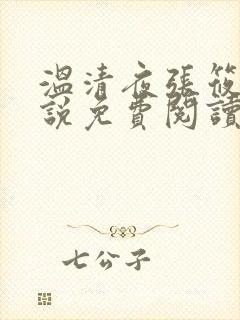 溫清夜張筱
說免費閱讀
七公子